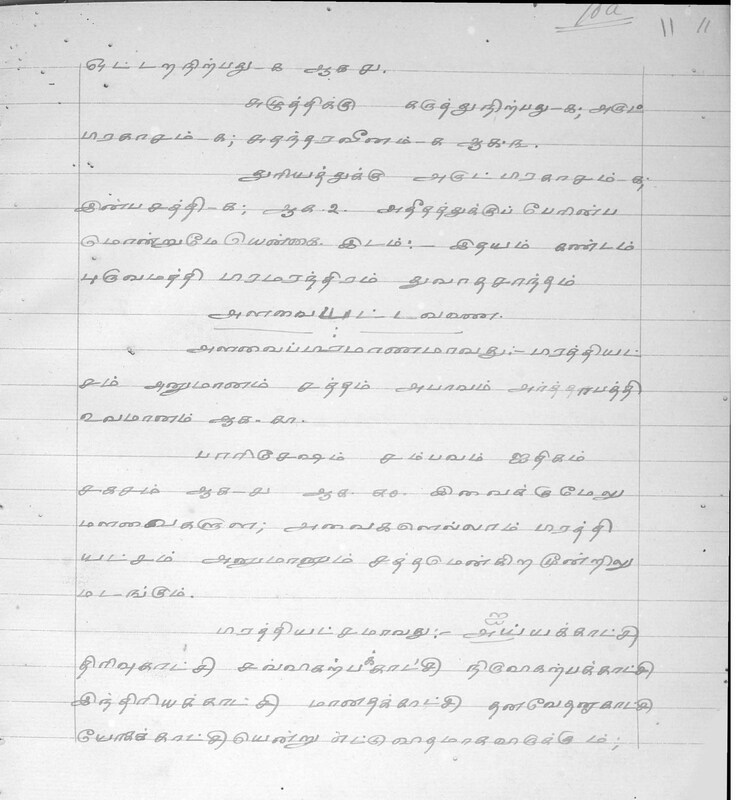 10a 11 11
ஓட்டறநிற்பது-௧ ஆக ௭.
சுழுத்திக்கு கடுத்துநிற்பது-௧; அருட்
பரகாசம்-௧; சுதந்தரவீனம்-௧ ஆக.௩.
துரியத்துக்கு அருட்பரகாசம்-௧;
இன்பசத்தி-௧; ஆக ௨. அதீதத்துக்குப் பேரின்ப
மொன்றுமேயென்க இடம்:- இதயம் கண்டம்
புருவமத்தி பரமரந்திரம் துவாதசாந்தம்
அளவைபட்டவணை.
அளவைப்பிரமாணமாவது:- பரத்தியட்
சம் அனுமானம் சத்தம் அபாவம் அர்த்தாபத்தி
உவமானம் ஆக-௬.
பாரிசேஷம் சம்பவம் ஐதிகம்
சகசம் ஆக-௪ ஆக ௧௦. இவைக்குமேலு
மளவைகளுள; அவைகளெல்லாம் பரத்தி
யட்சம் அனுமானம் சத்தமென்கிற மூன்றிலு
மடங்கும்.
பரத்தியட்சமாவது:- ஐய்யக்காட்சி
திரிவுகாட்சி சவ்விகற்பக்காட்சி நிருவிகற்பக்காட்சி
இந்திரியக்காட்சி மானதக்காட்சி தனவேதனுகாட்சி
யோகக்காட்சியென்று எட்டுவிதமாகவிருக்கும்;